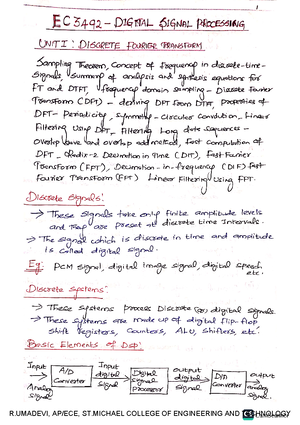 1
EC3492 - DIGITAL SIGNAL PROCESSING
UNIT I : DISCRETE FOURIER TRANSFORM
Sampling Theorem, Concept of frequency in discrete-time-
signals, Summary of analysis and synthesis equations for
FT and DTFT, frequency domain sampling - Discrete Fourier
Transform (DFT) - deriving DFT from DTFT, properties of
DFT - Periodicity, symmetry - Circular convolution, Linear
Filtering using DFT, Filtering Long data sequences -
overlap save and overlap add method, Fast computation of
DFT, Radix-2 Decimation in Time (DIT), Fast Fourier
Transform (FFT), Decimation-in-frequency (DIF) Fast
Fourier Transform (FFT) Linear Filtering using FFT.
Discrete Signals:
→ These signals take only finite amplitude levels
and are present at discrete time Intervals.
→ The signal which is discrete in time and amplitude
is called digital signal.
Eg: PCM signal, digital image signal, digital speech
etc.
Discrete Systems:
→ These systems process Discrete (or) digital signals.
→ These systems are made up of digital flip-flop,
shift registers, Counters, ALU, shifters, etc.
Basic Elements of DSP:
Input Analog signal
A/D Converter
Input digital signal
Digital signal processor
output digital signal
D/A Converter
output analog signal
R.UMADEVI, AP/ECE, ST.MICHAEL COLLEGE OF ENGINEERING AND TECHNOLOGY